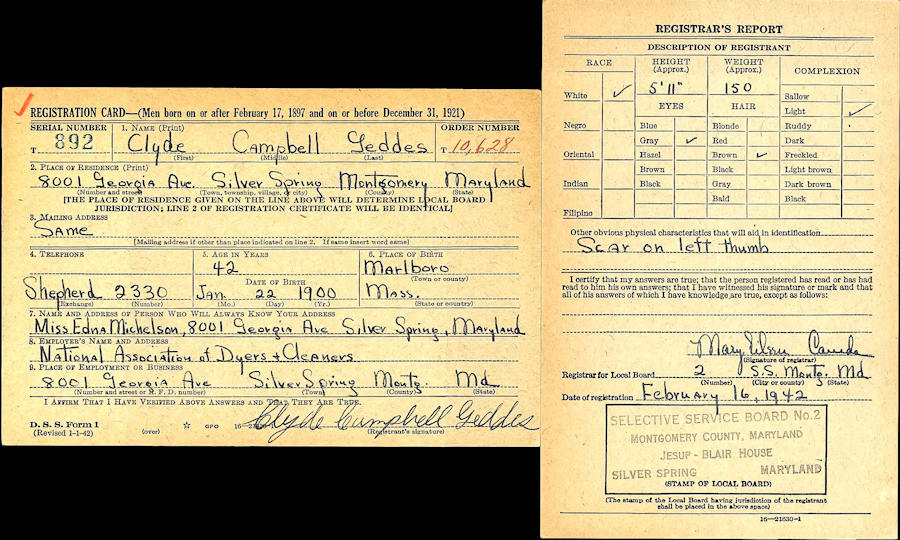 REGISTRATION CARD—(Men born on or after February 17, 1897 and on or before December 31, 1921)
SERIAL NUMBER
T 892
1. NAME (Print)
Clyde Campbell Geddes
(First) (Middle) (Last)
ORDER NUMBER
T 10,628
2. PLACE OF RESIDENCE (Print)
8001 Georgia Ave. Silver Spring Montgomery Maryland
(Number and street) (Town, township, village, or city) (County) (State)
[THE PLACE OF RESIDENCE GIVEN ON THE LINE ABOVE WILL DETERMINE LOCAL BOARD
JURISDICTION; LINE 2 OF REGISTRATION CERTIFICATE WILL BE IDENTICAL]
3. MAILING ADDRESS
Same
[Mailing address if other than place indicated on line 2. If same insert word same]
4. TELEPHONE
Shepherd 2330
(Exchange) (Number)
5. AGE IN YEARS
42
DATE OF BIRTH
Jan. 22 1900
(Mo.) (Day) (Yr.)
6. PLACE OF BIRTH
Marlboro
(Town or county)
Mass.
(State or country)
7. NAME AND ADDRESS OF PERSON WHO WILL ALWAYS KNOW YOUR ADDRESS
Miss Edna Michelson, 8001 Georgia Ave Silver Spring, Maryland
8. EMPLOYER'S NAME AND ADDRESS
National Association of Dyers + Cleaners
9. PLACE OF EMPLOYMENT OR BUSINESS
8001 Georgia Ave Silver Spring Montg. Md
(Number and street or R. F. D. number) (Town) (County) (State)
I AFFIRM THAT I HAVE VERIFIED ABOVE ANSWERS AND THAT THEY ARE TRUE.
D. S. S. Form 1
(Revised 1-1-42) (over) GPO 16
Clyde Campbell Geddes
(Registrant's signature)
REGISTRAR'S REPORT
DESCRIPTION OF REGISTRANT
RACE
White ✓
Negro
Oriental
Indian
Filipino
HEIGHT
(Approx.)
5'11"
WEIGHT
(Approx.)
150
EYES
Blue
Gray ✓
Hazel
Brown
Black
HAIR
Blonde
Red
Brown ✓
Black
Gray
Bald
COMPLEXION
Sallow
Light ✓
Ruddy
Dark
Freckled
Light brown
Dark brown
Black
Other obvious physical characteristics that will aid in identification
Scar on left thumb
I certify that my answers are true; that the person registered has read or has had
read to him his own answers; that I have witnessed his signature or mark and that
all of his answers of which I have knowledge are true, except as follows:
Mary
(Signature of registrar)
Registrar for Local Board 2 S.S. Montg. Md
(Number) (City or county) (State)
Date of registration February 16, 1942
SELECTIVE SERVICE BOARD No.2
MONTGOMERY COUNTY, MARYLAND
JESUP - BLAIR HOUSE
SILVER SPRING MARYLAND
(STAMP OF LOCAL BOARD)
(The stamp of the Local Board having jurisdiction of the registrant
shall be placed in the above space)
16—21630-1